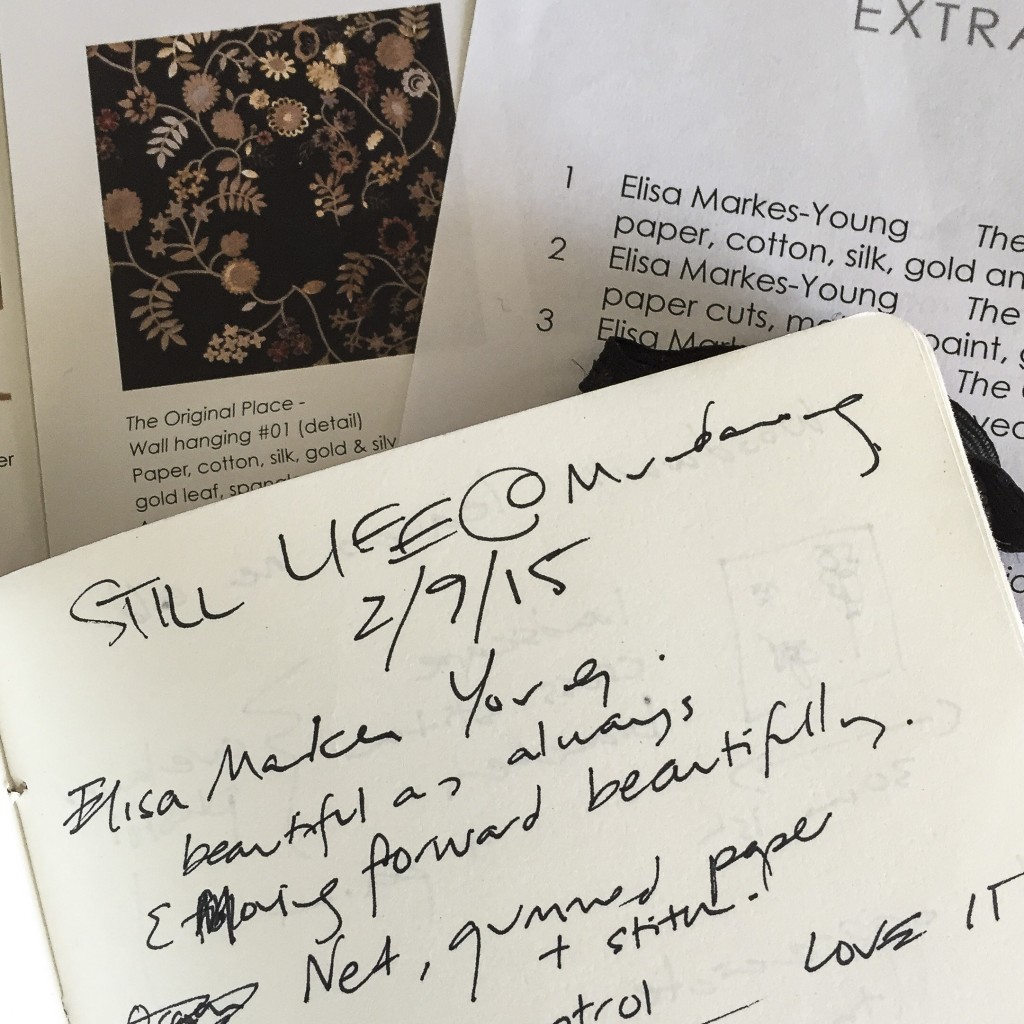 The Original Place -
Wall hanging #01 (detail)
Paper, cotton, silk, gold & silv
gold leaf,
er
EXTRA
1 Elisa Markes-Young The
paper, cotton, silk, gold an
2 Elisa Markes-Young The
paper cuts, paint, g
3 Elisa The
STILL LIFE @ Mundaring
2/9/15
Elisa Markes Young.
beautiful as always
& Moving forward beautifully.
Net, gummed paper
+ stitch!
LOVE IT